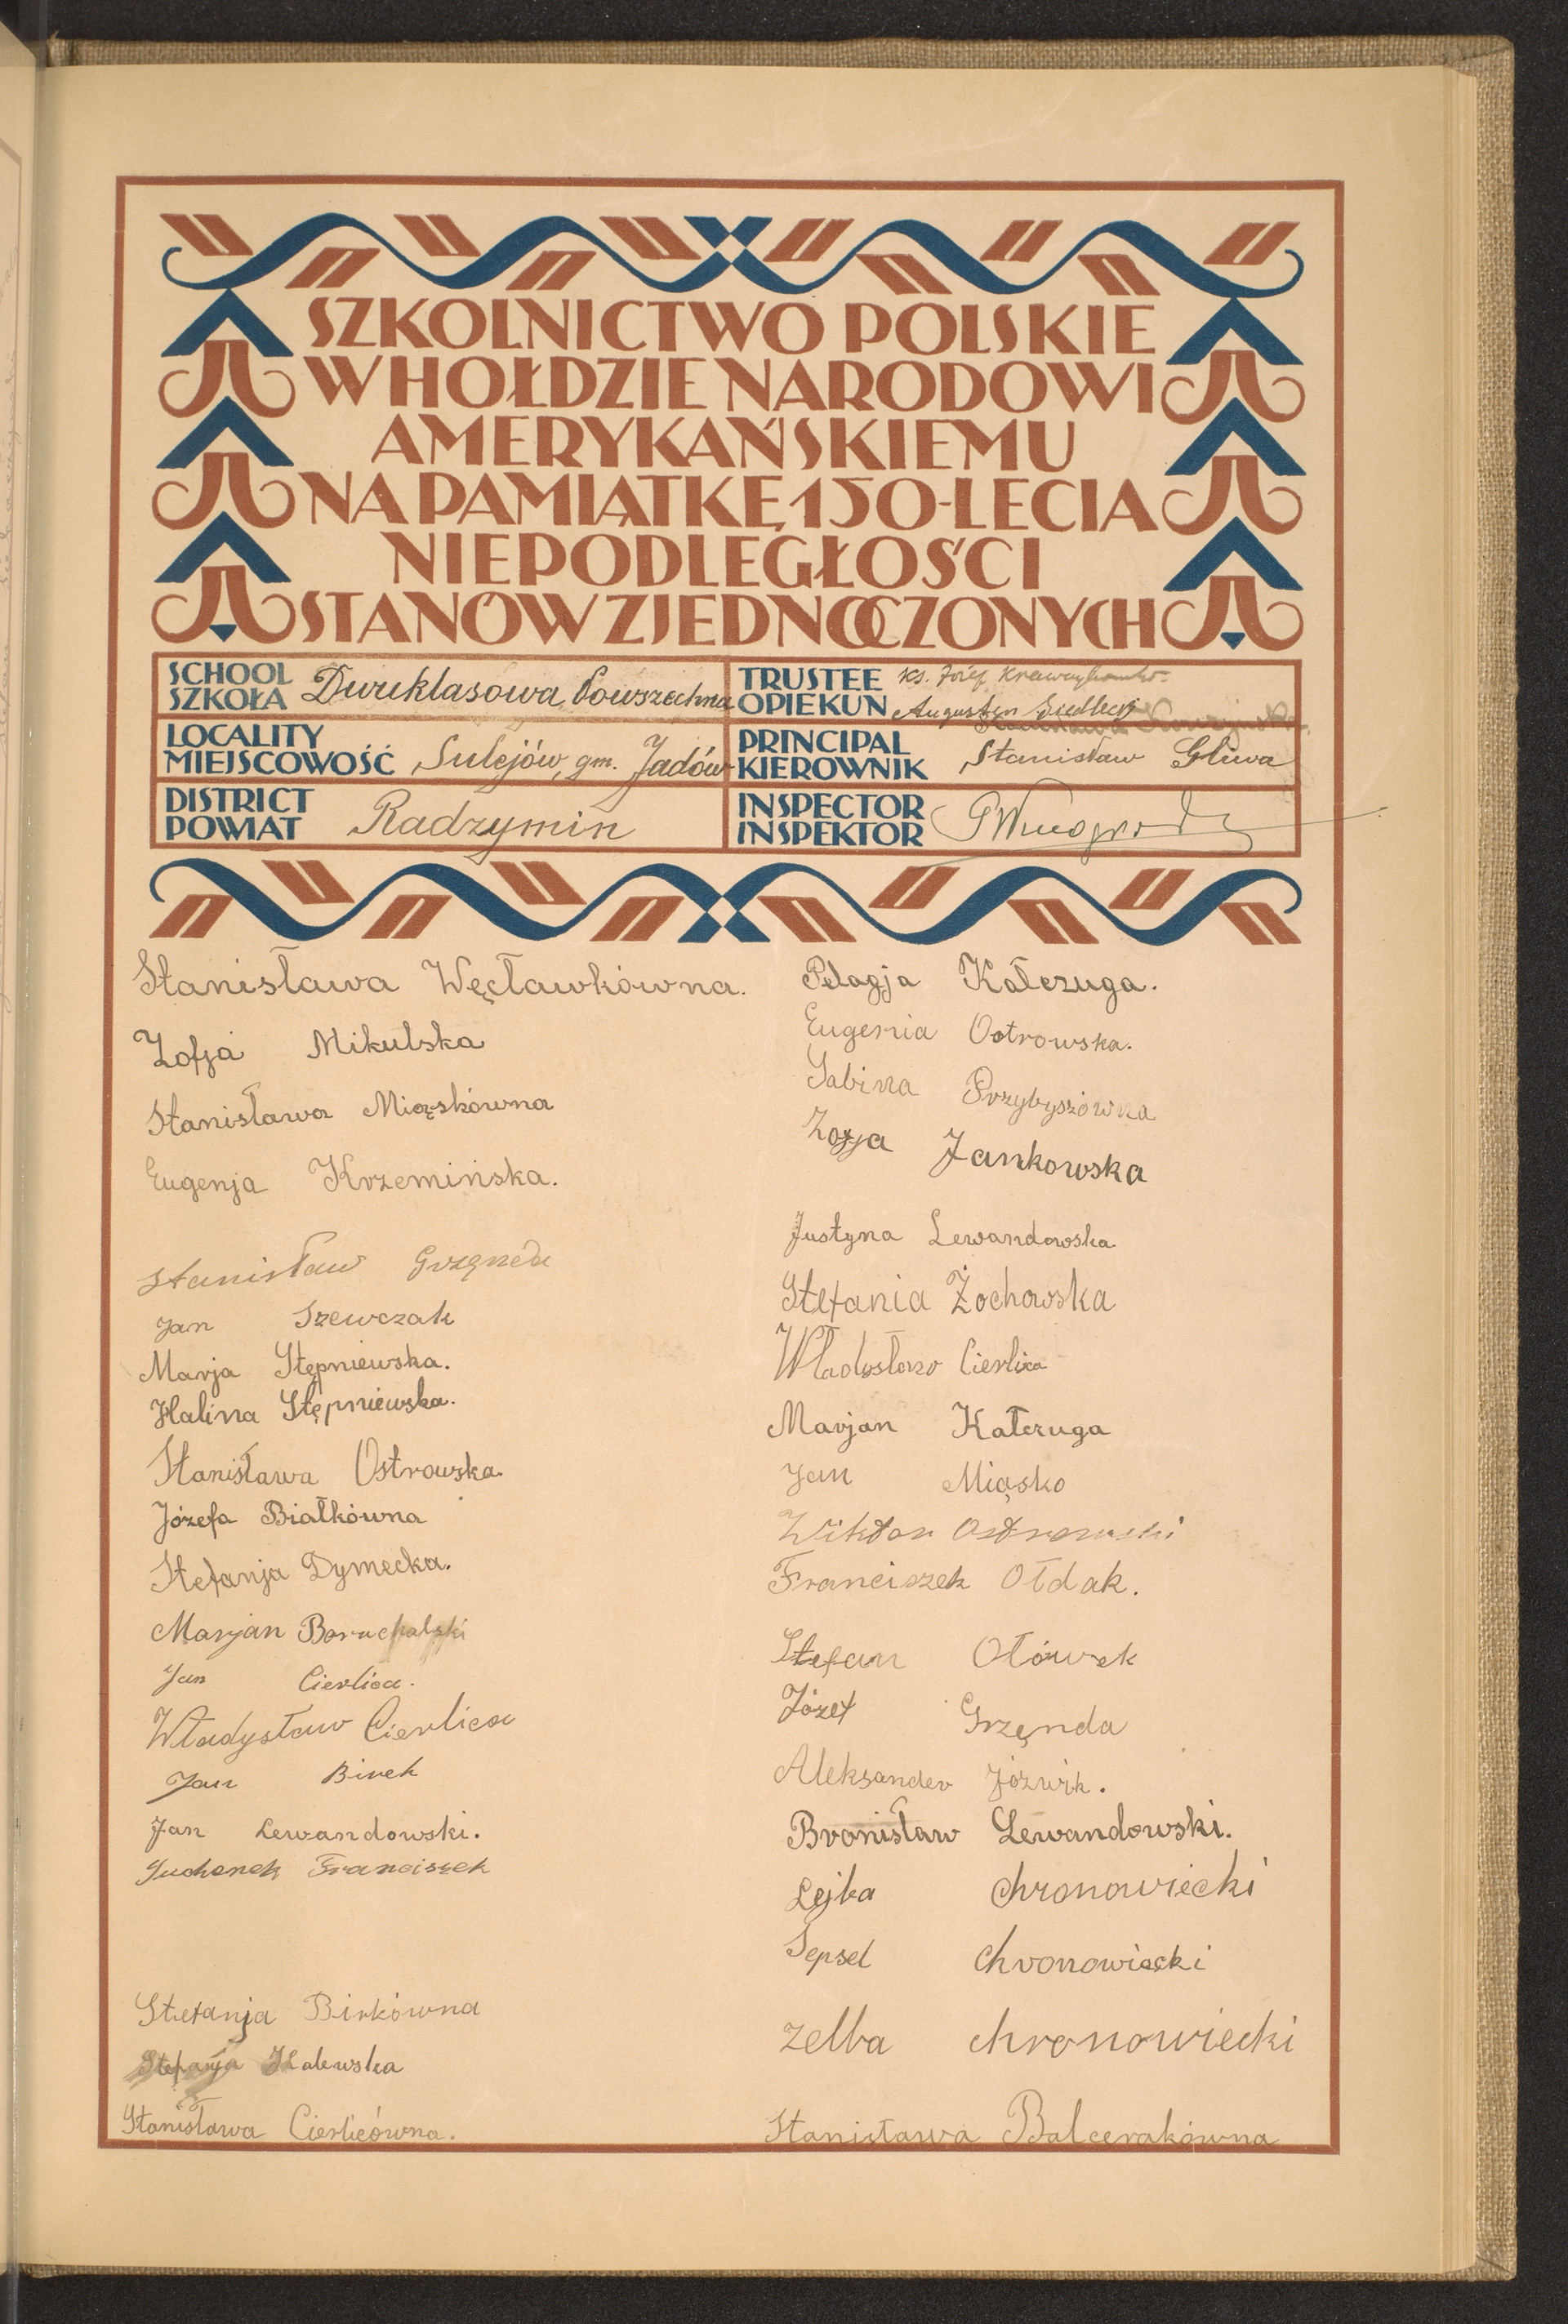 SZKOLNICTWO POLSKIE
W HOŁDZIE NARODOWI
AMERYKAŃSKIEMU
NA PAMIĄTKĘ 150-LECIA
NIEPODLEGŁOŚCI
STANÓW ZJEDNOCZONYCH
SCHOOL
SZKOŁA Dwuklasowa Powszechna
TRUSTEE ks. Józef
OPIEKUN Augustyn Siedlecki
LOCALITY
MIEJSCOWOŚĆ Sulejów, gm. Jadów
PRINCIPAL
KIEROWNIK Stanisław Gliwa
DISTRICT
POWIAT Radzymin
INSPECTOR
INSPEKTOR
Stanisława Węcławkówna.
Zofja Mikulska
Stanisława Miąskówna
Eugenja Krzemińska.
Stanisław Grzęnda
Jan Szewczak
Marja Stępniewska.
Halina Stępniewska.
Stanisława Ostrowska.
Józefa Białkówna
Stefanja Dymecka.
Marjan
Jan Cierlica.
Władysław Cierlica
Jan Birek
Jan Lewandowski.
Suchenek Franciszek
Stefanja Birkówna
Stefanja Zalewska
Stanisława Cierlicówna.
Pelagja Kałczuga.
Eugenia Ostrowska.
Sabina Przybyszówna
Zofja Jankowska
Justyna Lewandowska
Stefania Żochowska
Władysław Cierlica
Marjan Kałczuga
Jan Miąsko
Wiktor Ostrowski
Franciszek Ołdak.
Stefan Ołówek
Józef Grzęnda
Aleksander Józwik.
Bronisław Lewandowski.
Lejba Chronowiecki
Sepsel Chronowiecki
Zelba Chronowiecki
Stanisława Balcerakówna